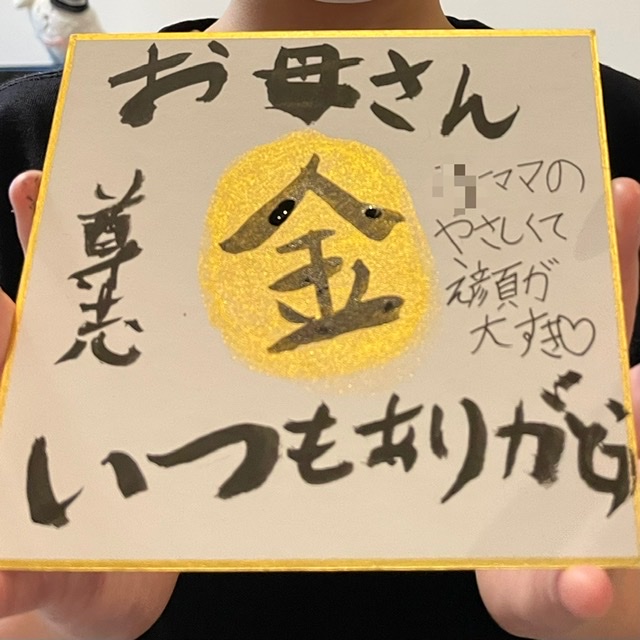 お母さん
金
ママの
やさしくて
え顔が
大すき♡
尊志
いつもありがとう